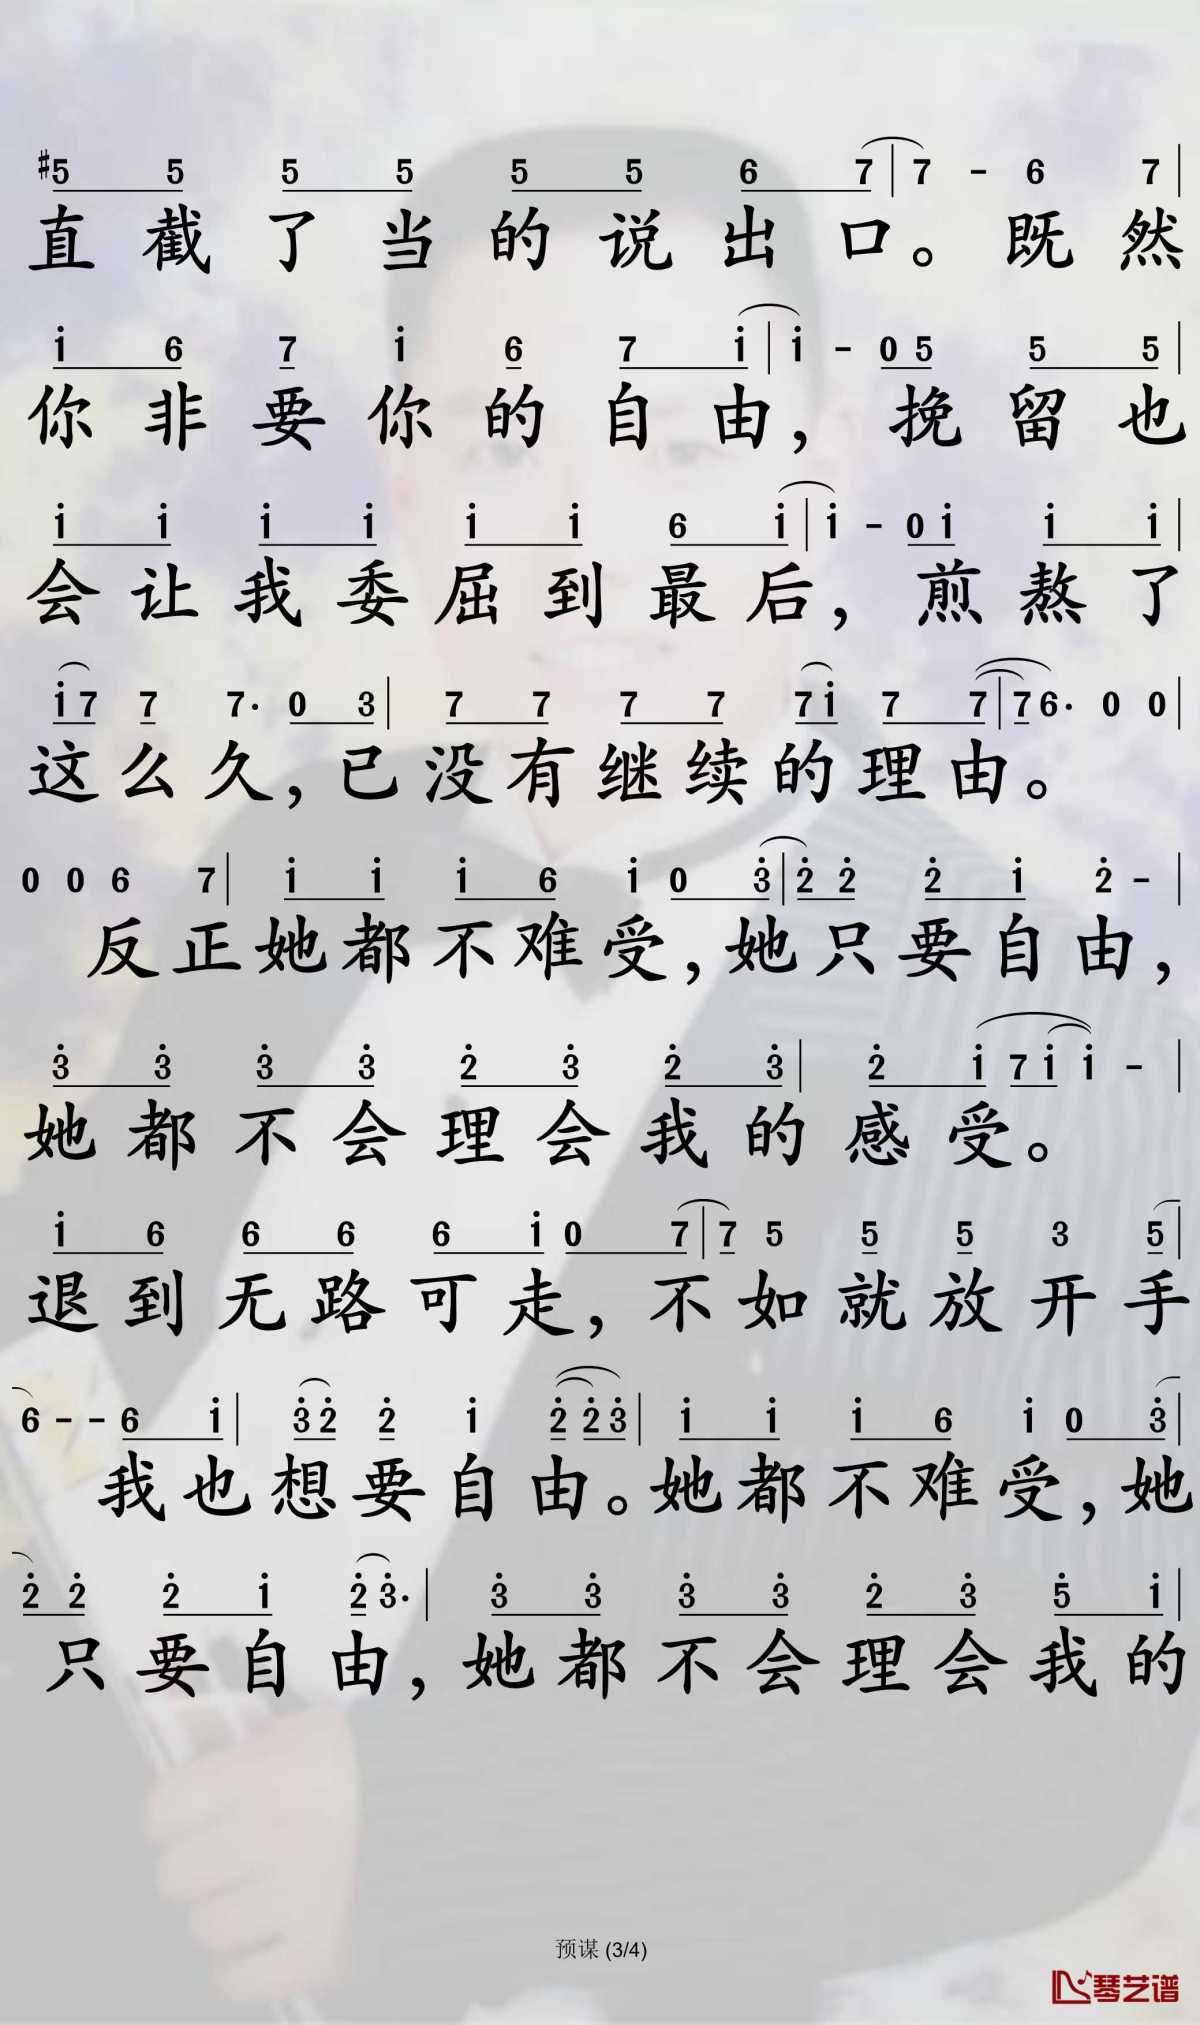 #5 5 5 5 5 5 6 7 | 7 - 6 7 |
直截了当的说出口。既然
i 6 7 i 6 7 i | i - 0 5 5 5 |
你非要你的自由，挽留也
i i i i i i 6 i | i - 0 i i i |
会让我委屈到最后，煎熬了
i 7 7 7· 0 3 | 7 7 7 7 7 i 7 7 | 7 6· 0 0 |
这么久，已没有继续的理由。
0 0 6 7 | i i i 6 i 0 3 | 2 2 2 i 2 - |
反正她都不难受，她只要自由，
3 3 3 3 2 3 2 3 | 2 i 7 i i - |
她都不会理会我的感受。
i 6 6 6 6 i 0 7 | 7 5 5 5 3 5 |
退到无路可走，不如就放开手
6 - - 6 i | 3 2 2 i 2 2 3 | i i i 6 i 0 3 |
我也想要自由。她都不难受，她
2 2 2 i 2 3· | 3 3 3 3 2 3 5 i |
只要自由，她都不会理会我的
预谋 (3/4)
琴艺谱